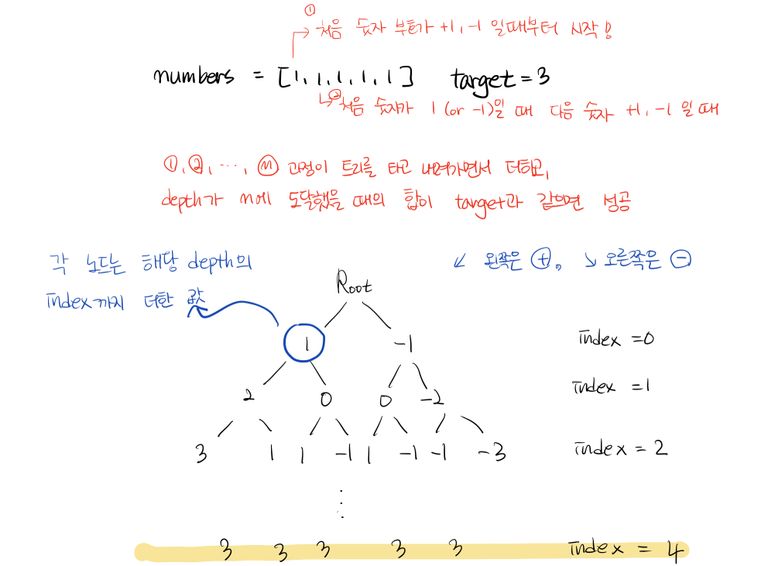 ①
처음 숫자 부호가 +1, -1 일때부터 시작!
numbers = [1, 1, 1, 1, 1] target = 3
② 처음 숫자가 1 (or -1)일 때 다음 숫자 +1, -1 일 때
①, ②, ..., ⓝ 과정이 트리를 타고 내려가면서 더하고,
depth가 n에 도달했을 때의 합이 target과 같으면 성공
각 노드는 해당 depth의
index까지 더한 값
↙ 왼쪽은 ⊕, ↘ 오른쪽은 ⊖
Root
1 -1 index = 0
2 0 0 -2 index = 1
3 1 1 -1 1 -1 -1 -3 index = 2
⋮
3 3 3 3 3 index = 4